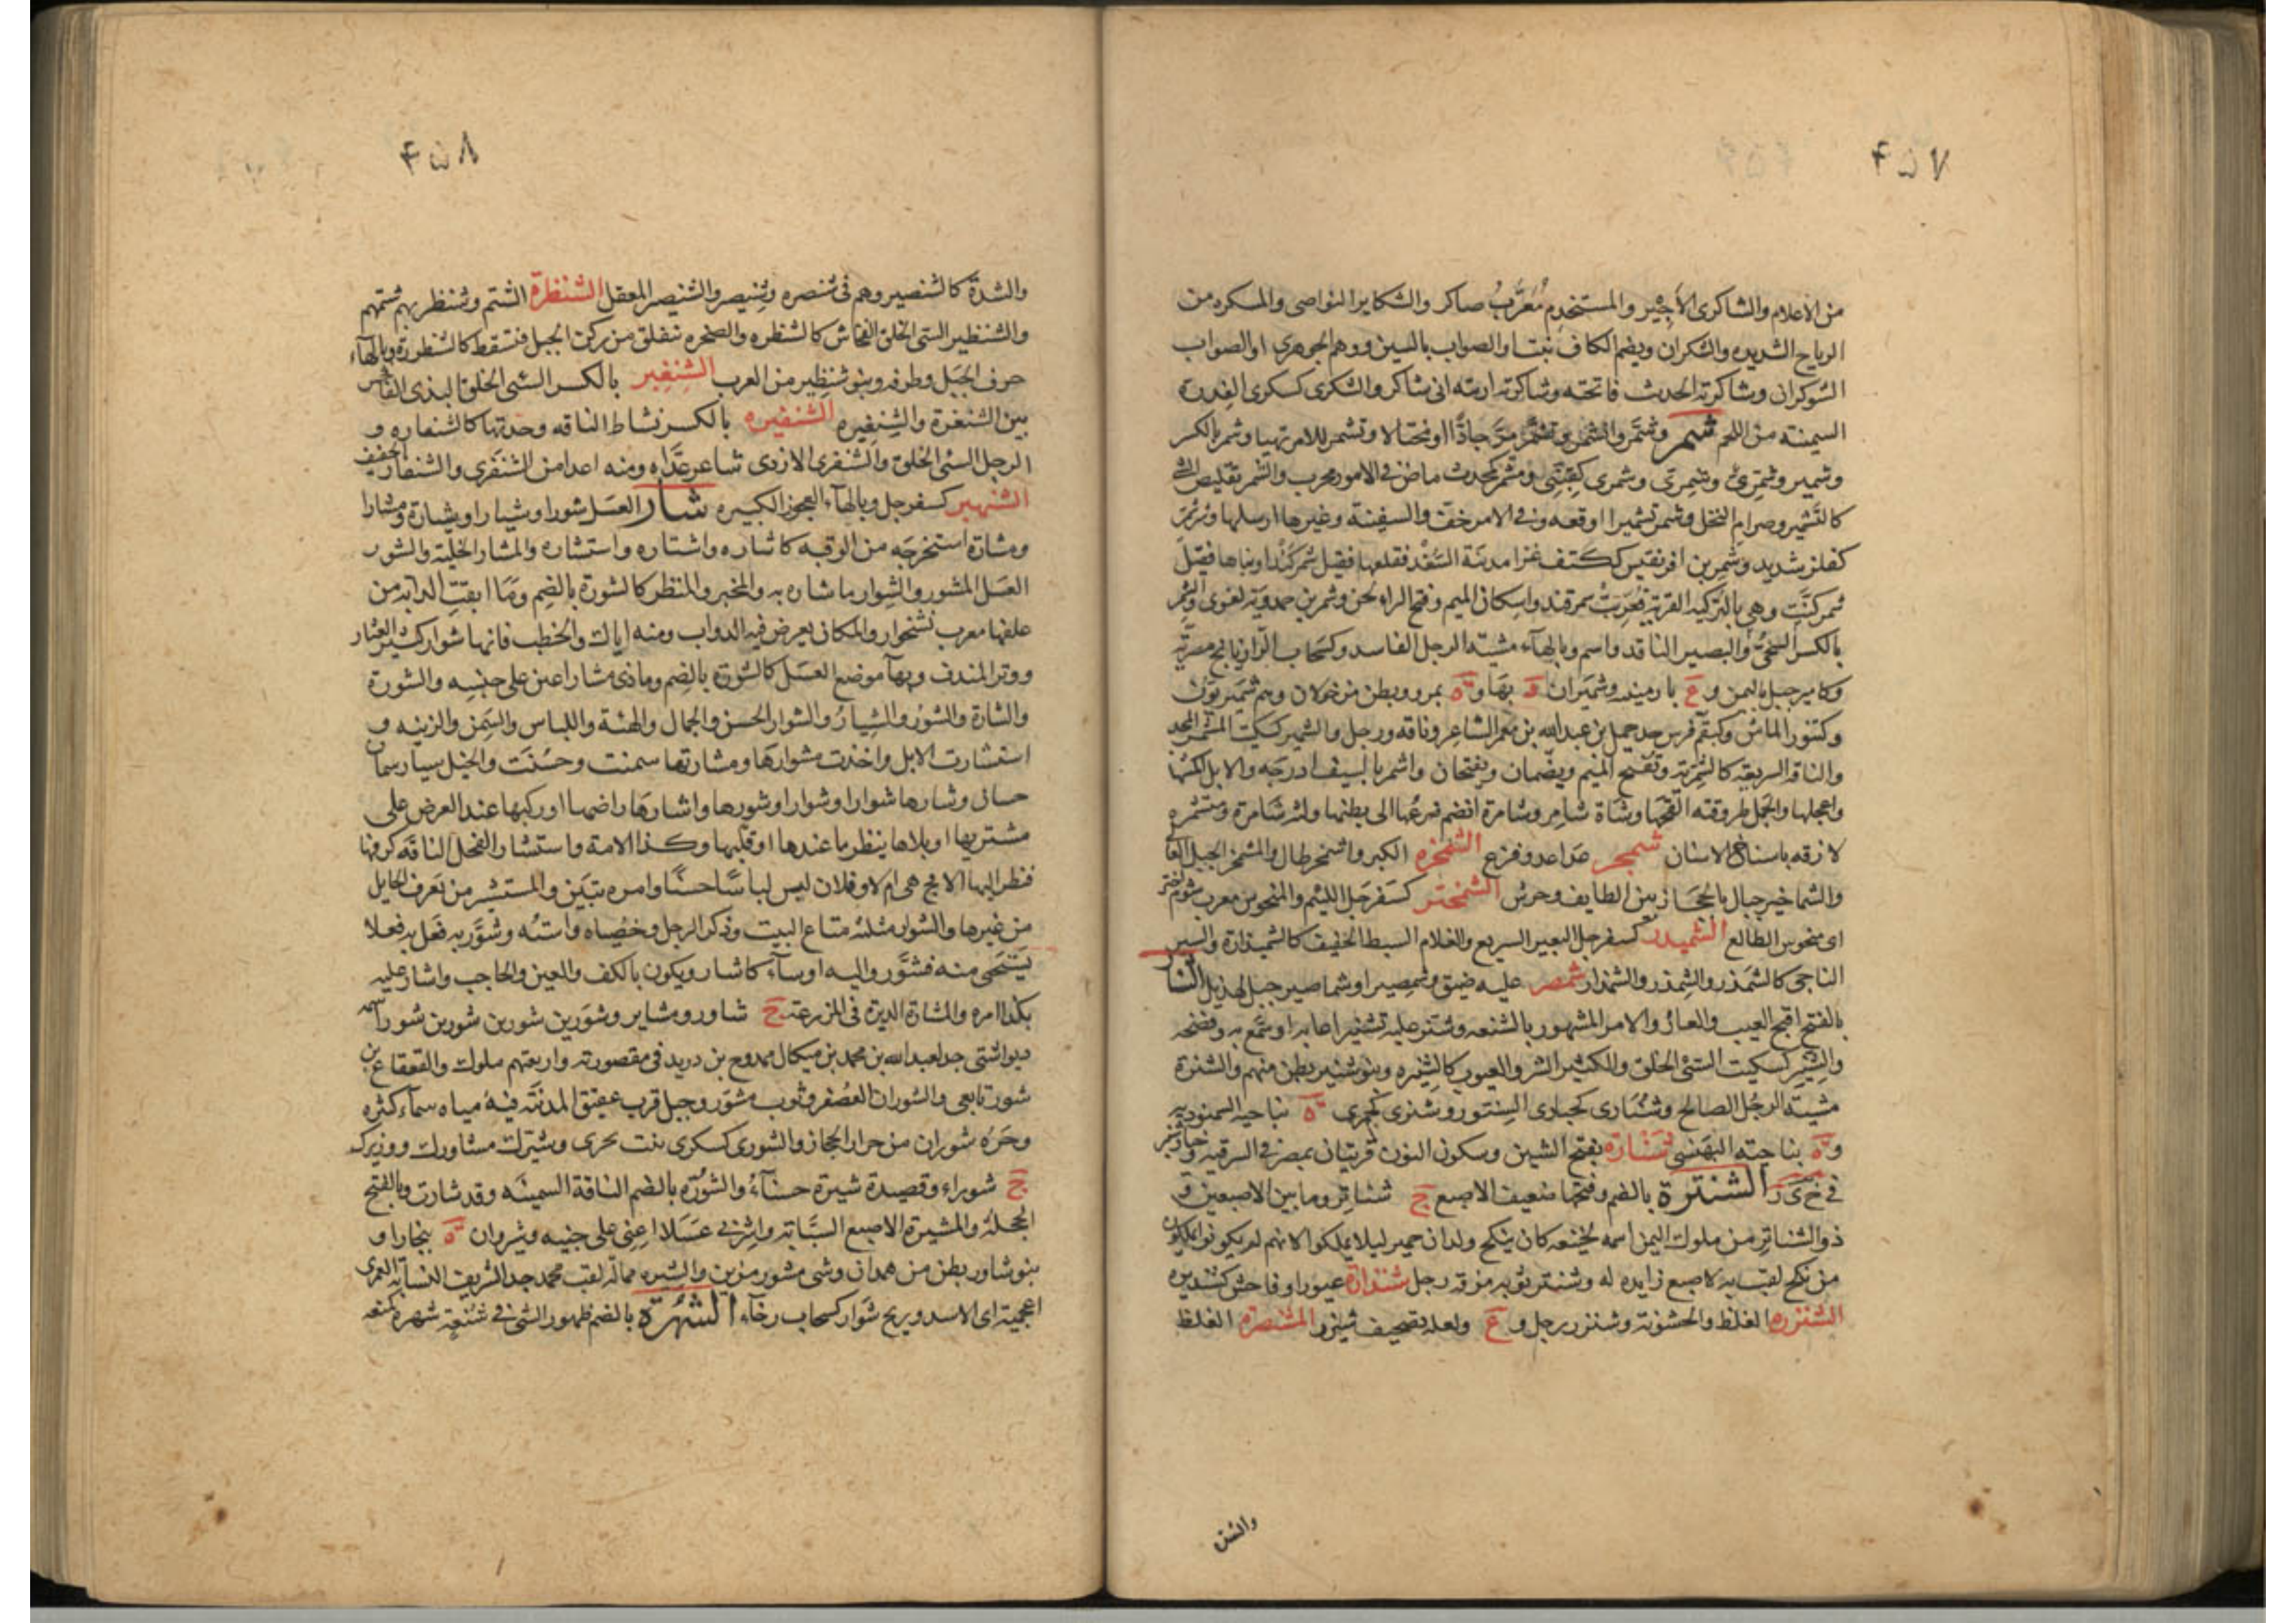 ۴۵۷
من الاعلام والشاكرى الاجير والمستخدم مُعَرَّبُ صاكر والشكاير النواصى والمكره من
الرياح الشديده والشكران ويضم الكاف نبت او الصواب بالسين ووهم الجوهرى او الصواب
الشوكران وشاكرته الحديث فاتحته وشاكرته اريته انى شاكر والشكرى كسكرى الفدرة
السمينة من اللحم شمر وشمّر وانشمر وتشمّر مرّ جادّا او مختالا وتشمر للامر تهيا وشمر بالكسر
وشمير وشمرى وشمرى وشمرى كقنبى ومشمر كمحدث ماض فى الامور مجرب والشمر تقليص الشى
كالتشمير وصرام النخل وشمر تشميرا اوقعه وفى الامر خف والسفينة وغيرها ارسلها وشرشمر
كفلز شديد وشمر بن افريقيس ككتف غزا مدينة السغد فقلعها فقيل شمركند او بناها فقيل
شمركنت وهى بالتركيه القرية فعربت سمرقند واسكان الميم وفتح الراء لحن وشمر بن حمدويه لغوى والشمر
بالكسر السخى والبصير الناقد واسم وبالهاء مشية الرجل الفاسد وكسحاب الرازيانج مصرية
وكامير جبل باليمن و ع بارمينيه وشميران د بها و ة بمرو وبطن من خولان وهم شميريون
وكتنور الماس وكبقم فرس جد جميل بن عبد الله بن معمر الشاعر وناقه ورجل والشمير كسكيت المشمر المجد
والناقه السريعة كالشمرية وتفتح الميم ويضمان ويفتحان واشمر بالسيف ادرجه والابل اكمشها
واعجلها والجمل طروقته القحها وشاة شامر وشامرة انضم ضرعها الى بطنها ولثة شامرة ومتشمره
لازقه باسناخ الاسنان شمجر عدا عدو فزع الشمخره الكبر واشمخر طال والمشمخر الجبل العا
والشماخير جبال بالحجاز بين الطايف وجرش الشمختر كسفرجل اللئيم والمنحوس معرب شوم اختر
اى منحوس الطالع الشميدر كسفرجل البعير السريع والغلام السبط الخفيف كالشميذارة والسير
الناجى كالشمذر والشمذر والشمذار شمصر عليه ضيق وشمصير او شماصير جبل لهذيل الشنار
بالفتح اقبح العيب والعار والامر المشهور بالشنعه وشنر عليه تشنيرا عابه او سمع به وفضحه
والشنير كسكيت السئ الخلق والكثير الشر والعيوب كالشنيره وبنو شنير بطن منهم والشنرة
مشية الرجل الصالح وشنارى كحبارى السنور وشنرى كجمزى ة بناحيه السمنوديه
و ة بناحيته البهنسى شنشارة بفتح الشين وسكون النون قريتان بمصر فى الشرقيه وخبازشنبر
فى خ ى ر الشنترة بالضم وفتحها ضعيف الاصبع ج شناتر وما بين الاصبعين و
ذو الشناتر من ملوك اليمن اسمه لخيتعه كان ينكح ولدان حمير ليلا يملكوا لانهم لم يكونوا يملكون
من نكح لقب به لاصبع زايده له وشنتر ثوبه مزقه رجل شنذارة غيور او فاحش كشنذيره
الشنزره الغلظ والخشونة وشنزر رجل و ع ولعله تصحيف شيزر المشنصرة الغلظ
والشد
۴۵۸
والشدة كالشنصير وهم فى شنصره وشنيصر والشنيصر المعقل الشنظرة الشتم وشنظر بهم شتمهم
والشنظير السئ الخلق الفحاش كالشنظره والصخره تنفلق من ركن الجبل فتسقط كالشنظورة وبالهاء
حرف الجبل وطرفه وبنو شنظير من العرب الشنغير بالكسر السئ الخلق البذى الفاحش
بين الشنغرة والشنغيره الشنفيره بالكسر نشاط الناقه وحدتها كالشنفاره و
الرجل السئ الخلق والشنفرى الازدى شاعر عدّاء ومنه اعدا من الشنفرى والشنفار الخفيف
الشنهبر كسفرجل وبالهاء العجوز الكبيره شار العسل شورا وشيارا وشيارة ومشارا
ومشارة استخرجه من الوقبه كاشاره واشتاره واستشاره والمشار الخلية والشور
العسل المشور والشوار ما شاره به والمخبر والمنظر كالشورة بالضم وما ابقت الدابة من
علفها معرب نشخوار والمكان يعرض فيه الدواب ومنه اياك والخطب فانها مشوار كثير العثار
ووتر المندف وبها موضع العسل كالشورة بالضم وماذى مشار اعين على جنيه والشورة
والشارة والشور والشيار والشوار الحسن والجمال والهئة واللباس والسمن والزينه و
استشارت الابل واخذت مشوارها ومشارتها سمنت وحسنت والخيل شيار سمان
حسان وشارها شوارا وشوارا وشورها واشارها راضها او ركبها عند العرض على
مشتريها او بلاها ينظر ما عندها او قلبها وكذا الامة واستشار الفحل الناقه كرفها
فنظر اليها الاقح هى ام لا وفلان لبس لباسا حسنا وامره تبين والمستشير من يعرف الحايل
من غيرها والشوار مثلثه متاع البيت وذكر الرجل وخصياه واسته وشور به فعل به فعلا
يستحى منه فتشور واليه اومأ كاشار ويكون بالكف والعين والحاجب واشار عليه
بكذا امره والمشارة الدبرة فى المزرعة ج مشاور ومشاير وشور بن شور بن شور بن شور اسمه
ديواشتى جد لعبد الله بن محمد بن ميكال ممدوح بن دريد فى مقصورته واربعتهم ملوك والقعقاع بن
شور تابعى والشوران العصفر وثوب مشور وجبل قرب عقيق المدينة فيه مياه سماء كثيره
وحرة شوران من حرار الحجاز والشورى كسكرى نبت بحرى وشيرك مشاورك ووزيرك
ج شوراء وقصيدة شيرة حسناء والشورة بالضم الناقة السمينه وقد شارت وبالفتح
الخجلة والمشيرة الاصبع السبابة واشرنى عسلا اعنى على جنيه وشروان ة ببخارا و
بنو شاور بطن من همدان وشى مشور مزين والشير ممالة لقب محمد جد الشريف النسابة العمرى
اعجمية اى الاسد وريح شوار كسحاب رخاء الشهرة بالضم ظهور الشى فى شنعة شهره كمنعه